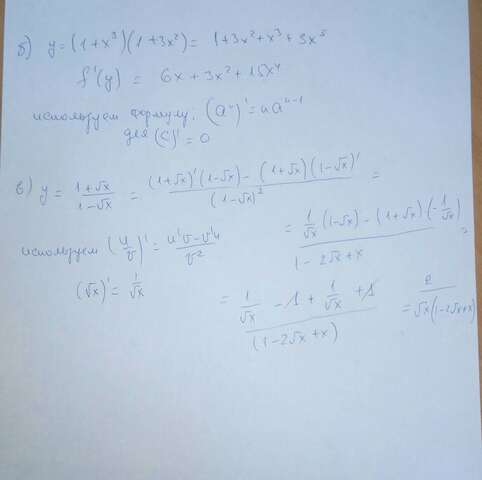 б) y = (1+x³)(1+3x²) = 1+3x²+x³+3x⁵
f'(y) = 6x+3x²+15x⁴
используем формулу: (aⁿ)' = naⁿ⁻¹
для (C)' = 0
в) y = (1+√x)/(1-√x) = ((1+√x)'(1-√x) - (1+√x)(1-√x)')/(1-√x)² =
= (1/√x (1-√x) - (1+√x)(-1/√x))/(1-2√x+x) =
используем (u/v)' = (u'v-v'u)/v²
(√x)' = 1/√x
= (1/√x - 1 + 1/√x + 1)/(1-2√x+x) = 2/(√x(1-2√x+x))